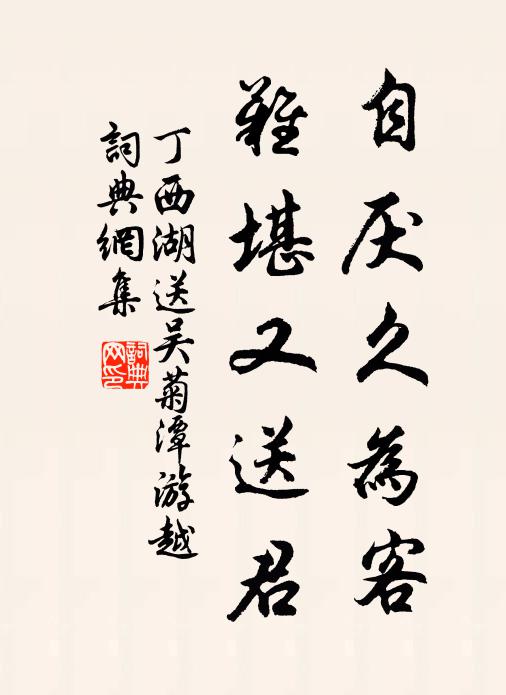 自厌久為客
難堪又送君
丁西湖送吴菊潭游越
詞典網集
詞典网印